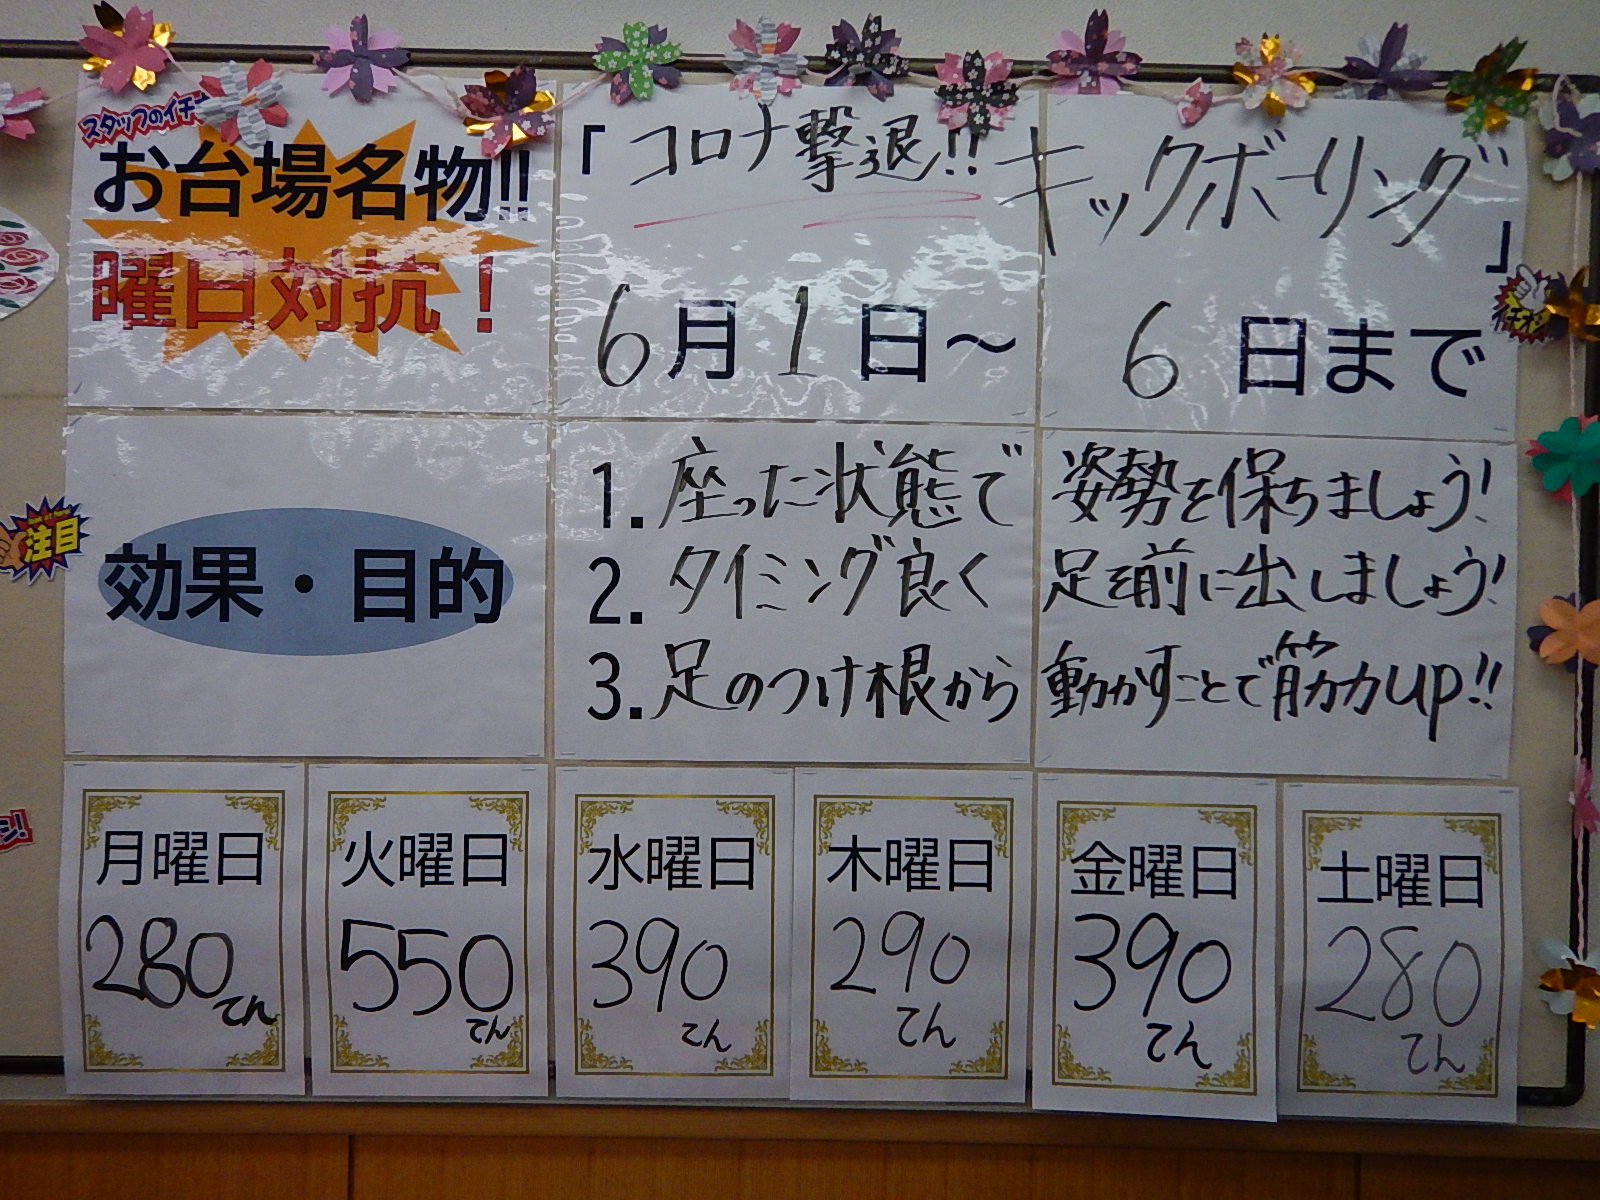 スタッフのイチ
お台場名物!!
曜日対抗！
「コロナ撃退!! キックボーリング」
6月1日～6日まで
イチオシ
注目
効果・目的
1. 座った状態で姿勢を保ちましょう!
2. タイミング良く足を前に出しましょう!
3. 足のつけ根から動かすことで筋力up!!
月曜日
280てん
火曜日
550てん
水曜日
390てん
木曜日
290てん
金曜日
390てん
土曜日
280てん